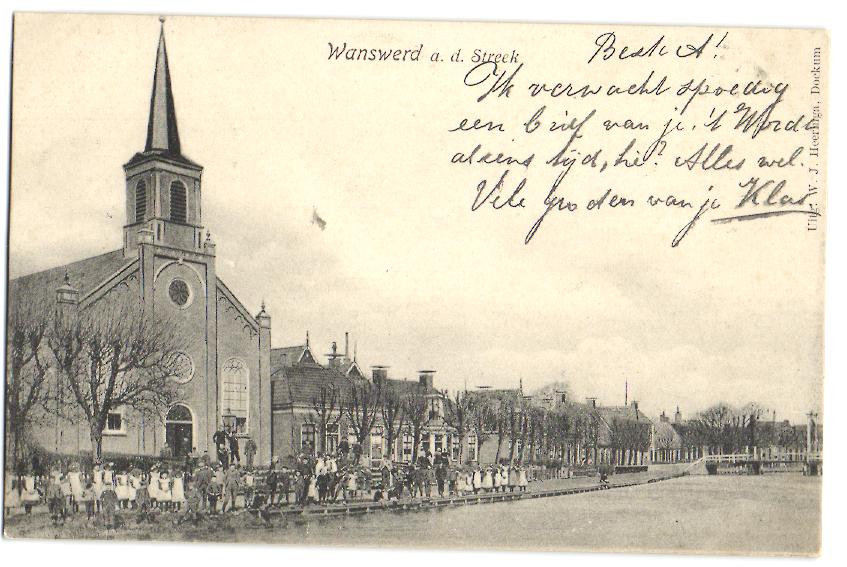 Wanswerd a. d. Streek
Beste A!
Ik verwacht spoedig
een brief van je. 't Wordt
alsens tijd, hè? Alles wel.
Vele groeten van je Klas
Uitg. W. J. Heeringa, Dockum